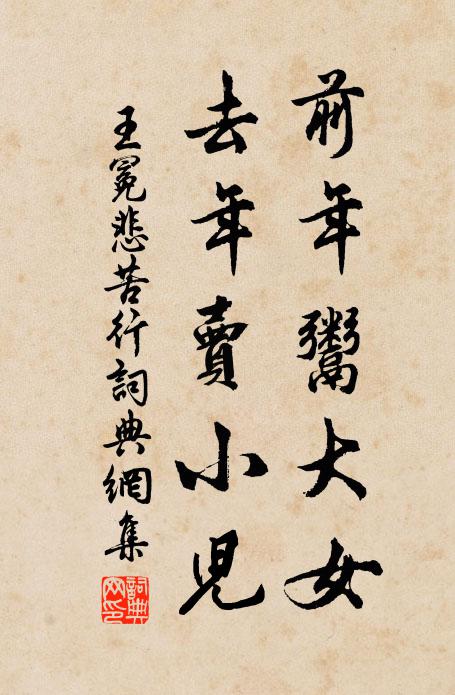 前年鬻大女
去年賣小児
王冕悲苦行詞典網集
詞典網印